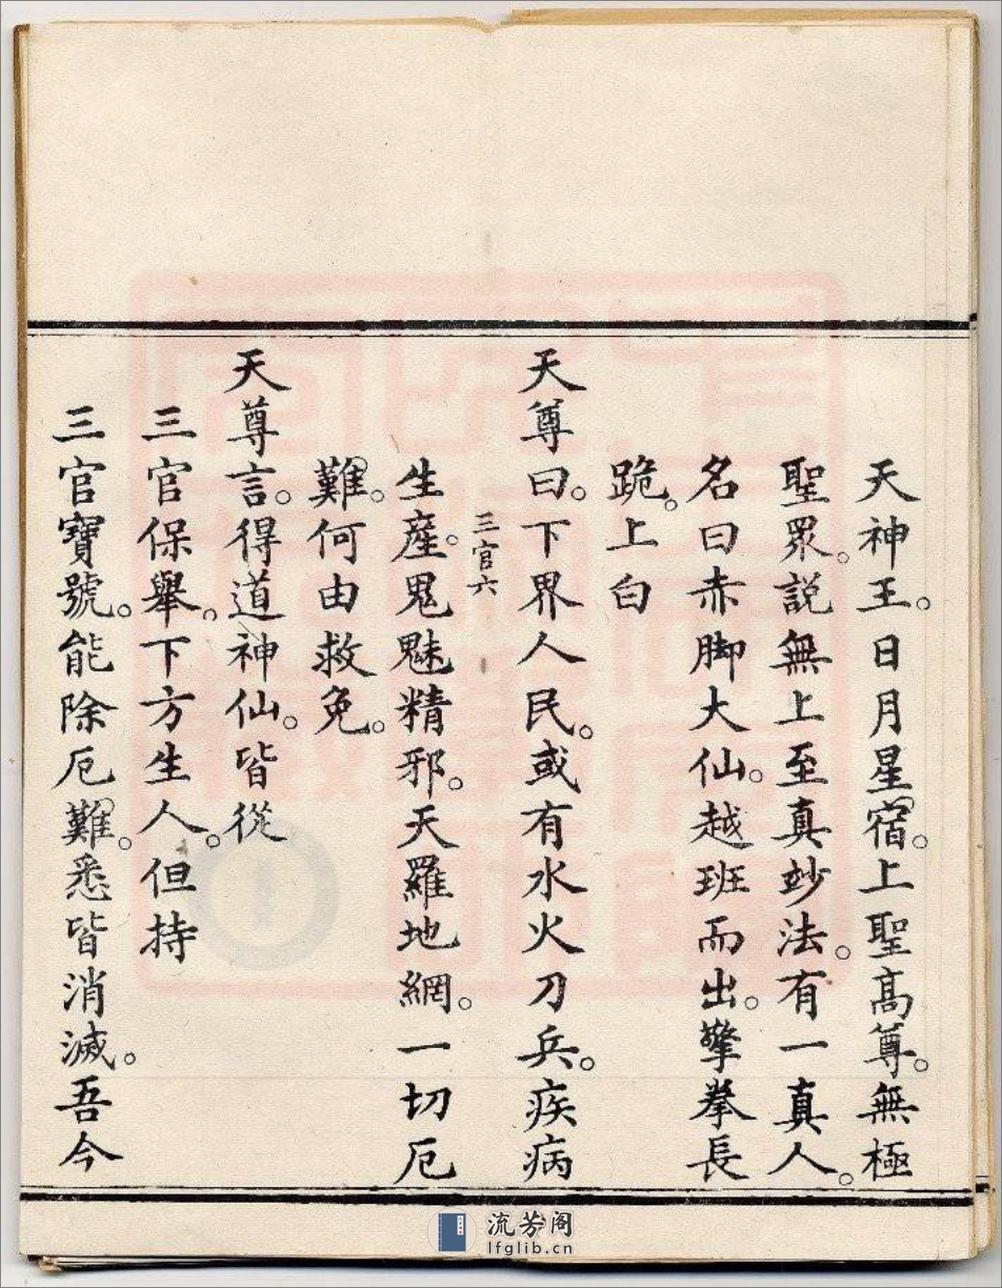 天神王。日月星宿。上聖高尊。無極
聖眾。説無上至真妙法。有一真人。
名曰赤脚大仙。越班而出。擎拳長
跪。上白
天尊曰。下界人民。或有水火刀兵。疾病
三官六
生産。鬼魅精邪。天羅地網。一切厄
難。何由救免。
天尊言。得道神仙。皆從
三官保舉。下方生人。但持
三官寶號。能除厄難。悉皆消滅。吾今
流芳阁
lfglib.cn